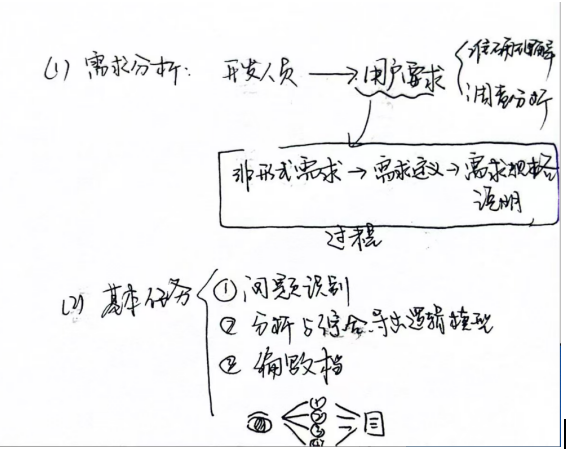 (1) 需求分析: 开发人员 → 用户要求
准确理解
调查分析
非形式需求 → 需求定义 → 需求规格
说明
过程
(2) 基本任务
① 问题识别
② 分析与综合 导出逻辑模型
③ 编写文档
①
②
③
④